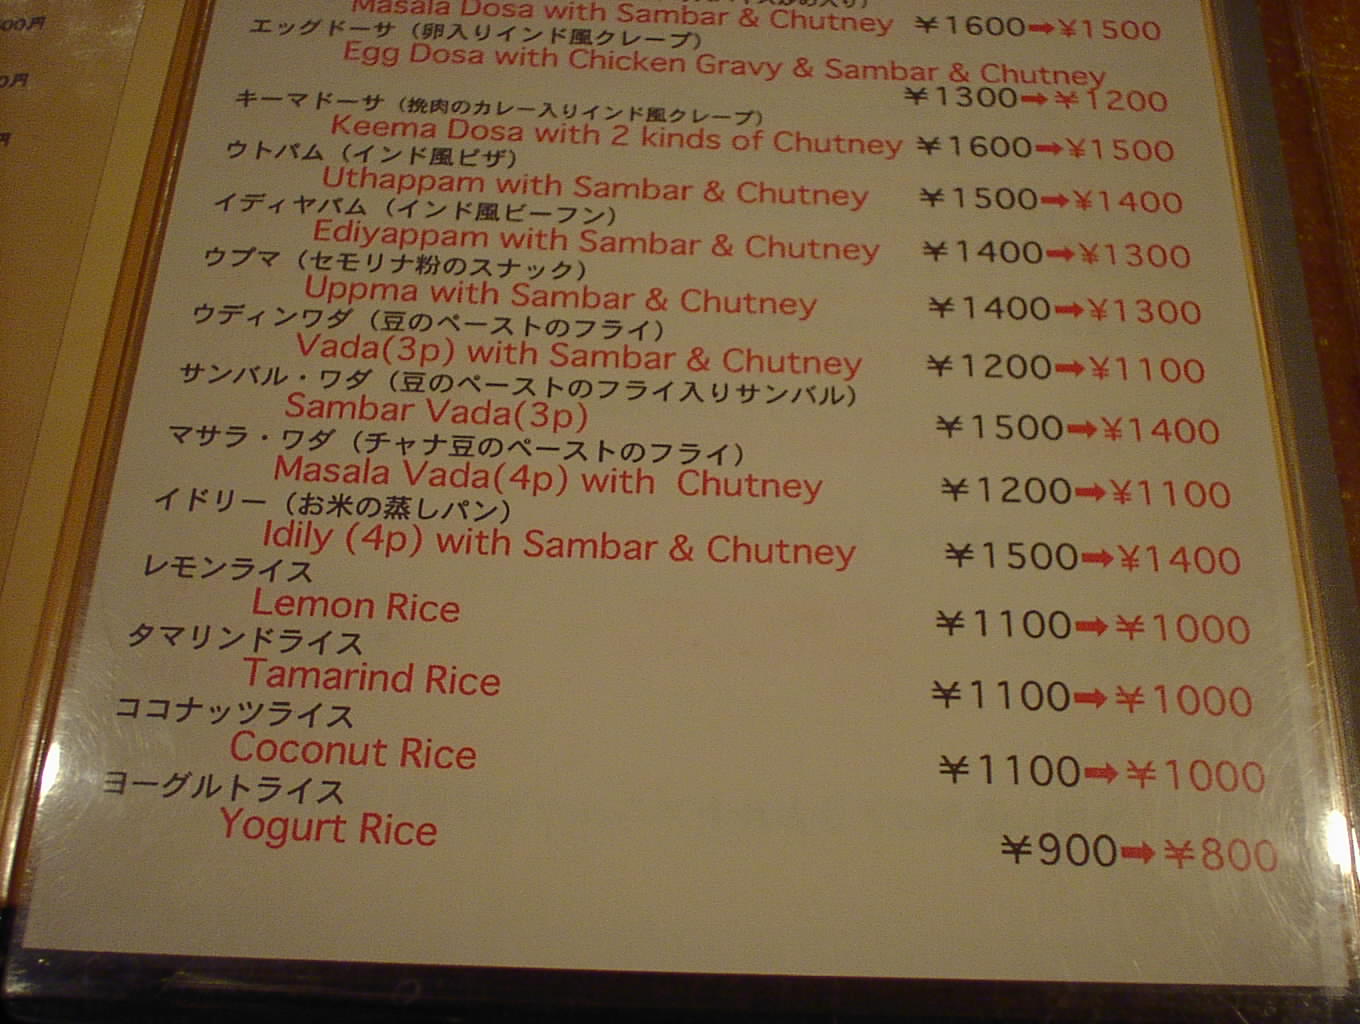 Masala Dosa with Sambar & Chutney ¥1600➡¥1500
エッグドーサ（卵入りインド風クレープ）
Egg Dosa with Chicken Gravy & Sambar & Chutney
¥1300➡¥1200
キーマドーサ（挽肉のカレー入りインド風クレープ）
Keema Dosa with 2 kinds of Chutney ¥1600➡¥1500
ウトパム（インド風ピザ）
Uthappam with Sambar & Chutney ¥1500➡¥1400
イディヤパム（インド風ビーフン）
Ediyappam with Sambar & Chutney ¥1400➡¥1300
ウプマ（セモリナ粉のスナック）
Uppma with Sambar & Chutney ¥1400➡¥1300
ウディンワダ（豆のペーストのフライ）
Vada(3p) with Sambar & Chutney ¥1200➡¥1100
サンバル・ワダ（豆のペーストのフライ入りサンバル）
Sambar Vada(3p) ¥1500➡¥1400
マサラ・ワダ（チャナ豆のペーストのフライ）
Masala Vada(4p) with Chutney ¥1200➡¥1100
イドリー（お米の蒸しパン）
Idily (4p) with Sambar & Chutney ¥1500➡¥1400
レモンライス
Lemon Rice ¥1100➡¥1000
タマリンドライス
Tamarind Rice ¥1100➡¥1000
ココナッツライス
Coconut Rice ¥1100➡¥1000
ヨーグルトライス
Yogurt Rice ¥900➡¥800